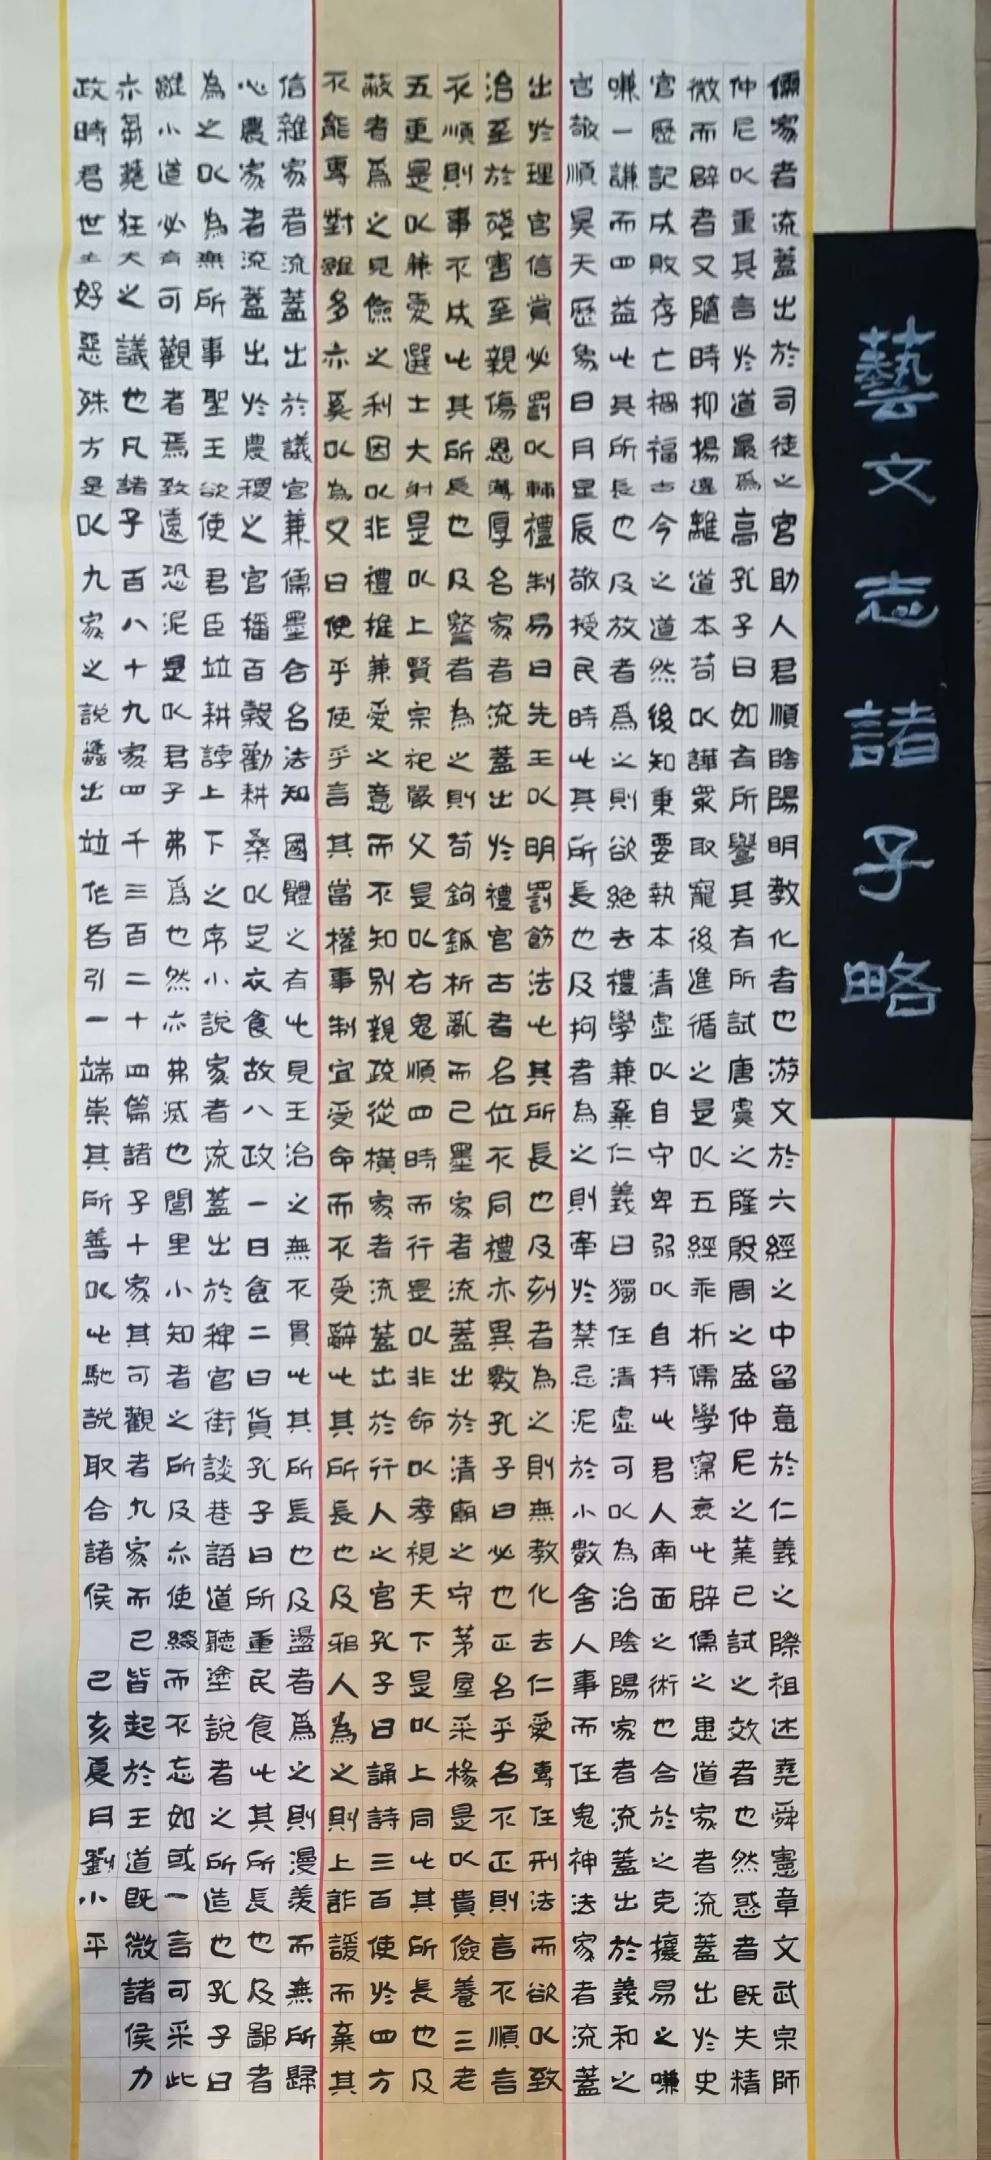 藝文志諸子略
儒家者流蓋出於司徒之官助人君順陰陽明教化者也游文於六經之中留意於仁義之際祖述堯舜憲章文武宗師
仲尼以重其言於道最爲高孔子曰如有所譽其有所試唐虞之隆殷周之盛仲尼之業已試之效者也然惑者既失精
微而辟者又隨時抑揚違離道本苟以譁眾取寵後進循之是以五經乖析儒學寖衰此辟儒之患道家者流蓋出於史
官歷記成敗存亡禍福古今之道然後知秉要執本清虛以自守卑弱以自持此君人南面之術也合於之克攘易之嗛
嗛一謙而四益此其所長也及放者爲之則欲絕去禮學兼棄仁義曰獨任清虛可以為治陰陽家者流蓋出於義和之
官敬順昊天歷象日月星辰敬授民時此其所長也及拘者為之則牽於禁忌泥於小數舍人事而任鬼神法家者流蓋
出於理官信賞必罰以輔禮制易曰先王以明罰飭法此其所長也及刻者為之則無教化去仁愛專任刑法而欲以致
治至於殘害至親傷恩薄厚名家者流蓋出於禮官古者名位不同禮亦異數孔子曰必也正名乎名不正則言不順言
不順則事不成此其所長也及警者為之則苟鉤鈲析亂而已墨家者流蓋出於清廟之守茅屋采椽是以貴儉養三老
五更是以兼愛選士大射是以上賢宗祀嚴父是以右鬼順四時而行是以非命以孝視天下是以上同此其所長也及
蔽者爲之見儉之利因以非禮推兼愛之意而不知別親疏從橫家者流蓋出於行人之官孔子曰誦詩三百使於四方
不能專對雖多亦奚以為又曰使乎使乎言其當權事制宜受命而不受辭此其所長也及邪人為之則上詐諼而棄其
信雜家者流蓋出於議官兼儒墨合名法知國體之有此見王治之無不貫此其所長也及盪者爲之則漫羨而無所歸
心農家者流蓋出於農稷之官播百穀勸耕桑以足衣食故八政一曰食二曰貨孔子曰所重民食此其所長也及鄙者
為之以為無所事聖王欲使君臣竝耕誖上下之序小說家者流蓋出於稗官街談巷語道聽塗說者之所造也孔子曰
雖小道必有可觀者焉致遠恐泥是以君子弗爲也然亦弗滅也閭里小知者之所及亦使綴而不忘如或一言可采此
亦芻蕘狂夫之議也凡諸子百八十九家四千三百二十四篇諸子十家其可觀者九家而已皆起於王道既微諸侯力
政時君世主好惡殊方是以九家之說蠭出竝作各引一端崇其所善以此馳說取合諸侯 己亥夏月劉小平